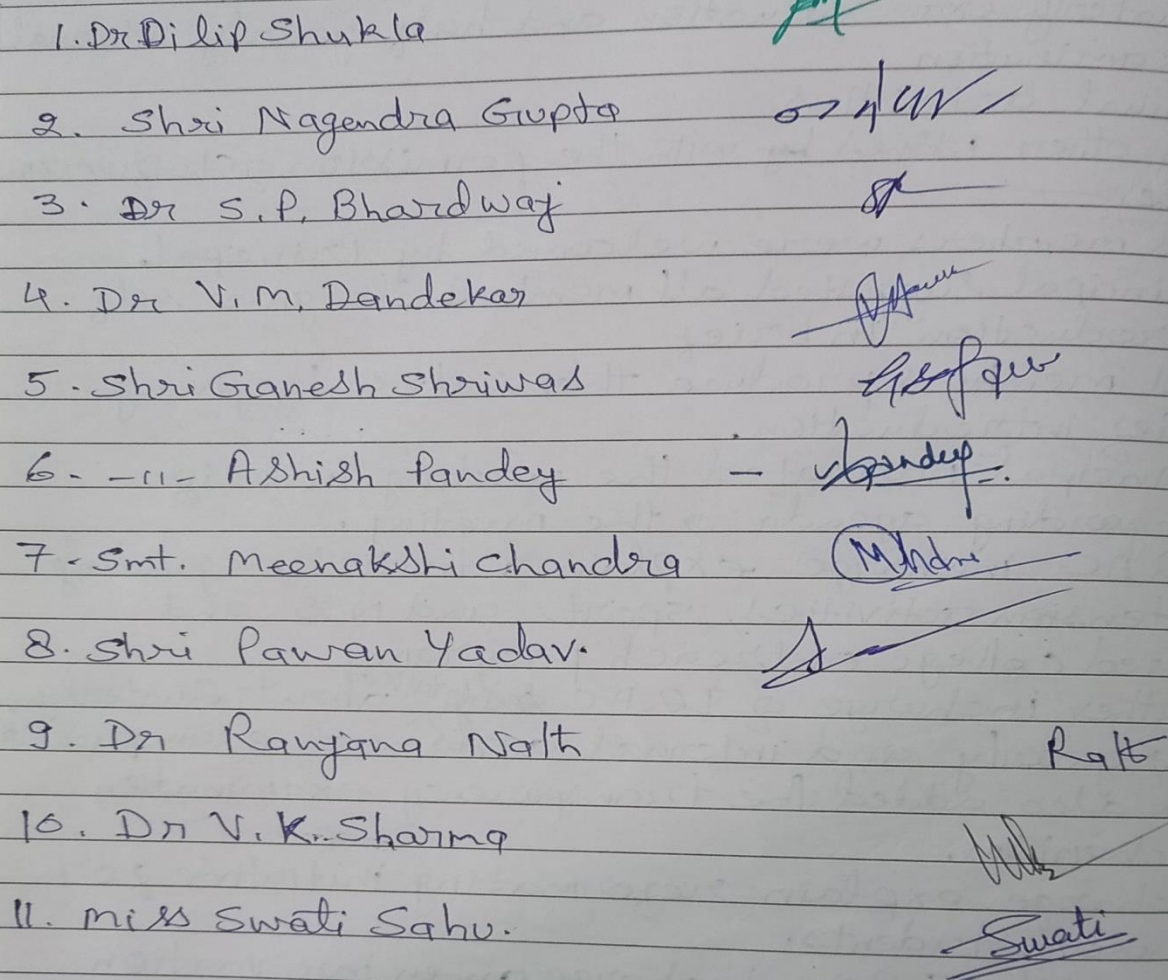 1. Dr Dilip Shukla
2. Shri Nagendra Gupta
3. Dr S.P. Bhardwaj
4. Dr V.M. Dandekar
5. Shri Ganesh Shriwas
6. -11- Ashish Pandey -
7. Smt. Meenakshi Chandra
8. Shri Pawan Yadav.
9. Dr Ranjana Nath
10. Dr V.K. Sharma
11. Miss Swati Sahu. Swati